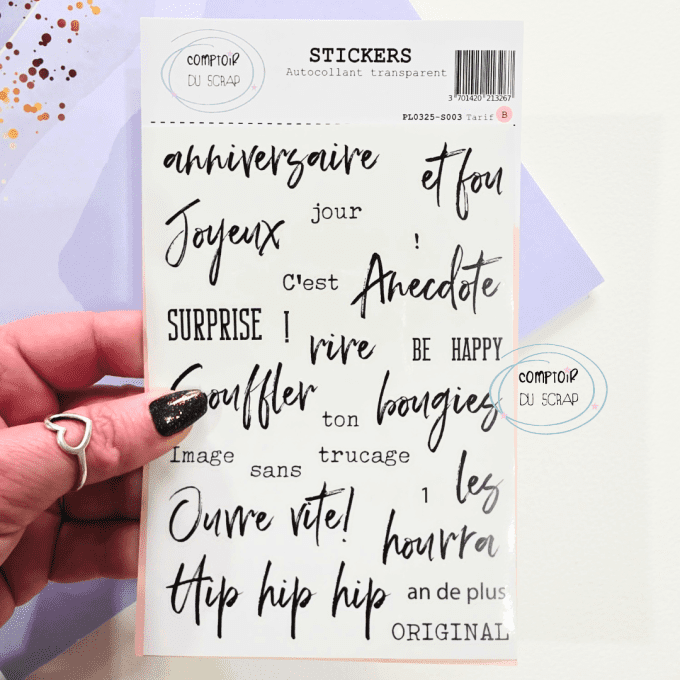 COMPTOIR
DU SCRAP
STICKERS
Autocollant transparent
3 701420 213267
PL0325-S003 Tarif B
anniversaire
et fou
jour
Joyeux
!
C'est
Anecdote
SURPRISE !
rire
BE HAPPY
Souffler
ton
bougies
COMPTOIR
DU SCRAP
Image
sans
trucage
les
1
Ouvre vite!
hourra
Hip hip hip
an de plus
ORIGINAL